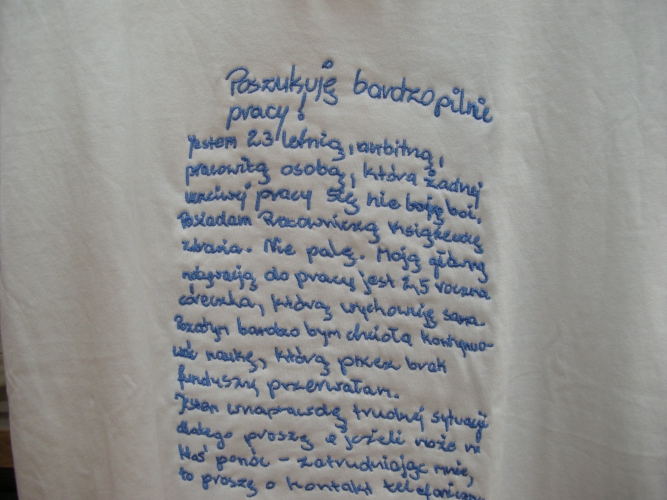 Poszukuję bardzo pilnie
pracy!
Jestem 23 letnią, ambitną,
pracowitą osobą, która żadnej
uczciwej pracy się nie boję boi.
Posiadam Pracowniczą książeczkę
zdrowia. Nie palę. Moją główną
motywacją do pracy jest 2,5 roczna
córeczka, którą wychowuję sama
Pozatym bardzo bym chciała kontynuo-
wać naukę, którą przez brak
funduszy przerwałam.
Jestem w naprawdę trudnej sytuacji
dlatego proszę o jeżeli może mi
Ktoś pomóc - zatrudniając mnie,
to proszę o kontakt telefoniczny